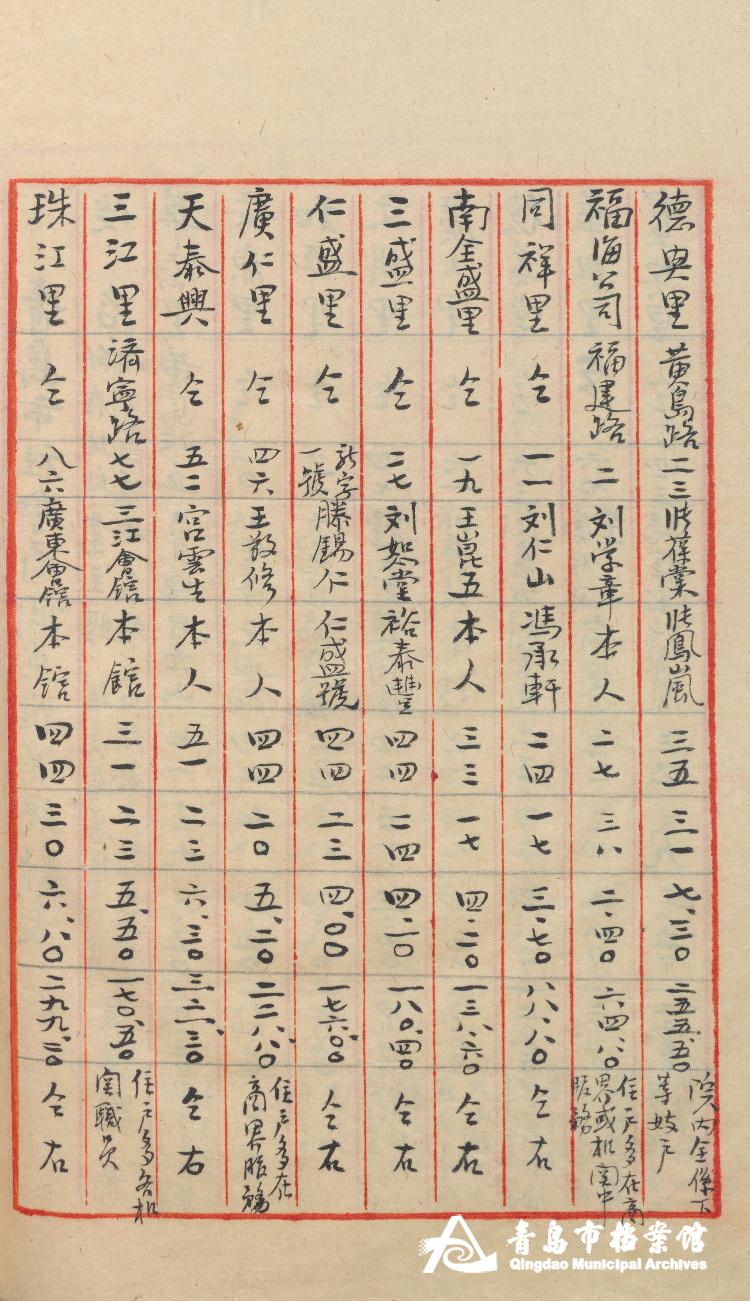 德興里 黄島路 二三 張葆棠 張鳳嵐 三五 三一 七.三〇 二五五.五〇 院内全係下等妓戶
福海公司 福建路 二 刘学章 本人 二七 三八 二.四〇 六四.八〇 住戶多在商界或机関中服務
同祥里 仝 一一 刘仁山 馮承軒 二四 一七 三.七〇 八八.八〇 仝右
南全盛里 仝 一九 王崑五 本人 三三 一七 四.二〇 一三八.六〇 仝右
三盛里 仝 二七 刘恕堂 裕泰豐 四四 二四 四.二〇 一八〇.四〇 仝右
仁盛里 仝 新字一號 滕錫仁 仁盛號 四四 二三 四.〇〇 一七六.〇〇 仝右
廣仁里 仝 四六 王敬修 本人 四四 二〇 五.二〇 二二八.八〇 住戶多在商界服務
天泰興 仝 五二 宫雲生 本人 五一 二三 六.三〇 三二一.三〇 仝右
三江里 濟寧路 七七 三江會館 本館 三一 二三 五.五〇 一七〇.五〇 住戶多各机関職員
珠江里 仝 八六 廣東會館 本館 四四 三〇 六.八〇 二九九.二〇 仝右
青岛市档案馆
Qingdao Municipal Archives